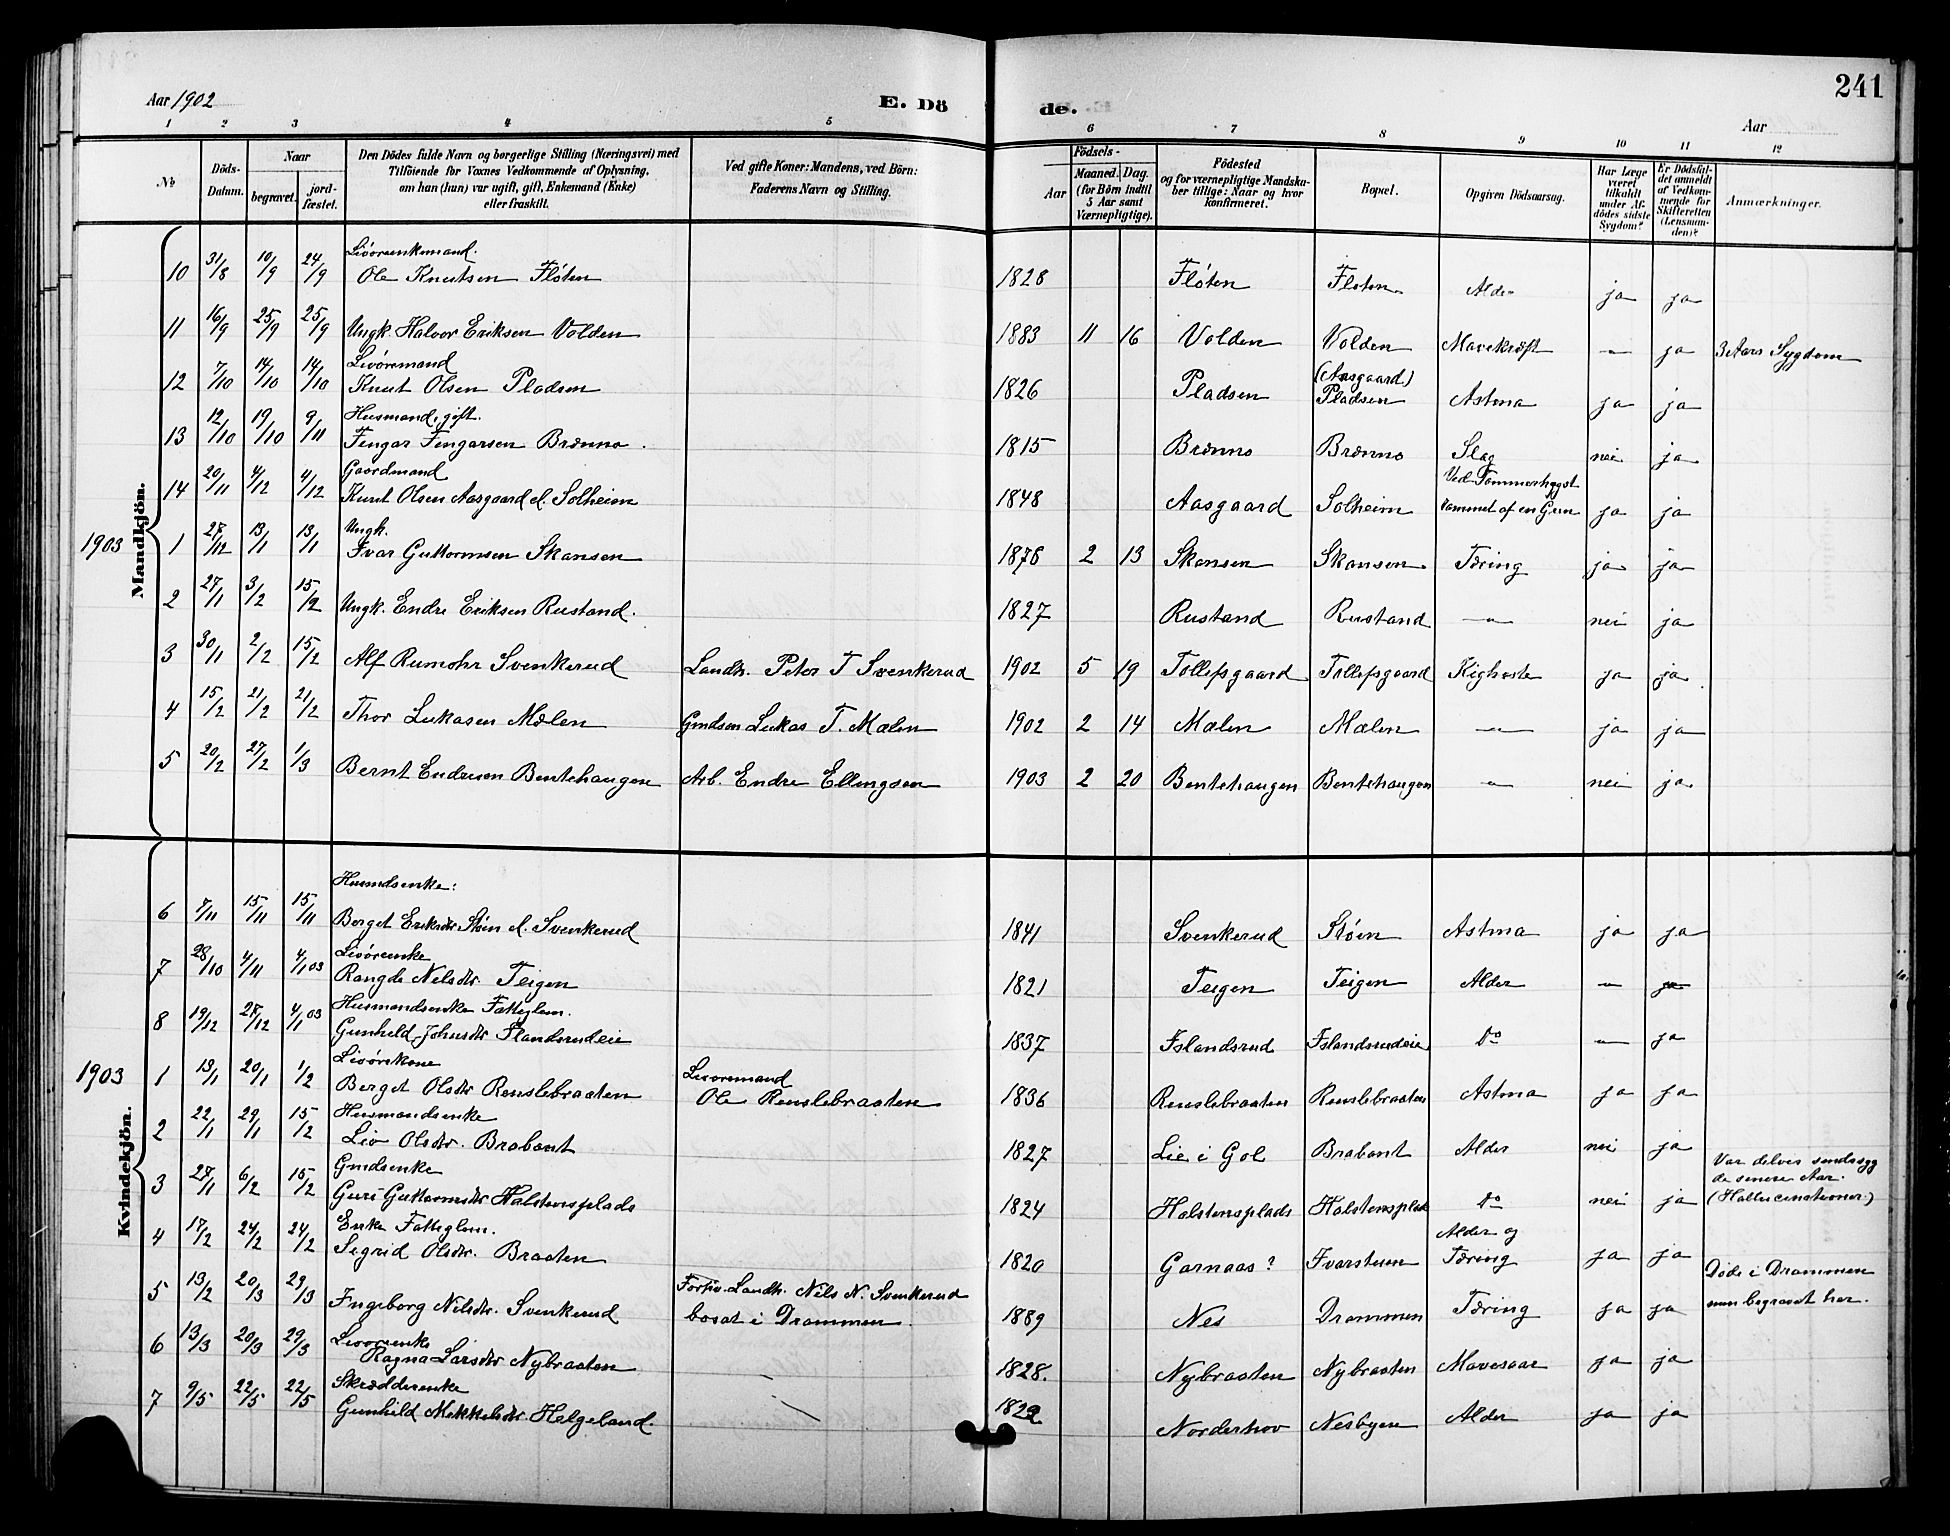 241
Aar 1902 E. Dö de. Aar
1 2 3 4 5 6 7 8 9 10 11 12
№ Döds-Datum. Naar begravet. jord-fæstet. Den Dödes fulde Navn og borgerlige Stilling (Næringsvei) med Tilföiende for Voxnes Vedkommende af Oplysning, om han (hun) var ugift, gift, Enkemand (Enke) eller fraskilt. Ved gifte Koner: Mandens, ved Börn: Faderens Navn og Stilling. Födsels- Aar Maaned. Dag. (for Börn indtil 5 Aar samt Værnepligtige). Födested og for værnepligtige Mandskaber tillige: Naar og hvor konfirmeret. Bopæl. Opgiven Dödsaarsag. Har Læge været tilkaldt under Afdödes sidste Sygdom? Er Dödsfaldet anmeldt af Vedkommende for Skifteretten (Lensmanden)? Anmærkninger.
Mandkjön.
Livøreenkemand.
10 31/8 10/9 24/9 Ole Knutsen Fløten 1828 Fløten Fløten Alder ja ja
11 16/9 25/9 25/9 Ungk. Halvor Eriksen Volden 1883 11 16 Volden Volden Mavekræft " ja 3 Aars Sygdom
Livøremand
12 7/10 14/10 14/10 Knut Olsen Pladsen 1826 Pladsen (Aasgaard) Pladsen Astma ja ja
Husmand, gift.
13 12/10 19/10 9/11 Tingar Tingarsen Brenno. 1815 Brenno Brenno Slag nei ja
Gaardmand Ved Tømmerhugst
14 20/11 4/12 4/12 Knut Olsen Aasgaard el. Solheim 1848 Aasgaard Solheim rammet af en Gren ja ja
Ungk.
1903 1 27/12 13/1 13/1 Ivar Guttormsen Skansen 1878 2 13 Skansen Skansen Tæring ja ja
2 27/1 3/2 15/2 Ungk. Endre Eriksen Rustand. 1827 Rustand Rustand " nei ja
3 30/1 2/2 15/2 Alf Rumohr Svenkerud Landh. Peter T Svenkerud 1902 5 19 Tollefsgaard Tollefsgaard Kighoste ja ja
4 15/2 21/2 21/2 Thor Lukasen Mælen Gmdsøn Lukas T. Mælen 1902 2 14 Mælen Mælen " ja ja
5 20/2 27/2 1/3 Bernt Endresen Bentehaugen Arb. Endre Ellingsen 1903 2 20 Bentehaugen Bentehaugen " nei ja
Kvindekjön.
Husmdsenke:
6 7/11 15/11 15/11 Berget Eriksdtr. Støen el. Svenkerud 1841 Svenkerud Støen Astma ja ja
Livøreenke
7 28/10 4/11 4/1 03 Rangdi Nelsdtr. Teigen 1821 Teigen Teigen Alder " ja
Husmandsenke Fattiglem.
8 19/12 28/12 4/1 03 Gunhild Johnsdtr Islandsrudeie 1837 Islandsrud Islandsrudeie Do " ja
Livørekone Livøremand
1903 1 13/1 20/1 1/2 Berget Olsdtr Renslebraaten Ole Renslebraaten 1836 Renslebraaten Renslebraaten Astma ja ja
Husmandsenke
2 22/1 29/1 15/2 Liv Olsdtr. Brabant 1827 Lie i Gol Brabant Alder nei ja
Gmdsenke Var delvis sindssyg de senere Aar.
3 27/1 6/2 15/2 Guri Guttormsdtr Halstensplads 1824 Halstensplads Halstensplads Do nei ja (Hallucinationer.)
Enke Fattiglem. Alder og
4 17/2 24/2 24/2 Sigrid Olsdtr. Braaten 1820 Garnaas? Ivarstuen Tæring ja ja
Forhv. Landh. Nils N. Svenkerud Døde i Drammen
5 13/2 20/3 29/3 Ingeborg Nilsdtr. Svenkerud bosat i Drammen. 1889 Nes Drammen Tæring ja ja men begravet her.
Livøreenke
6 13/3 20/3 29/3 Ragna Larsdtr Nybraaten 1828. Nybraaten Nybraaten Mavesaar ja ja
Skrædderenke
7 9/5 22/5 22/5 Gunhild Mekkelsdtr Helgeland. 1822 Norderhov Nesbyen Alder ja ja